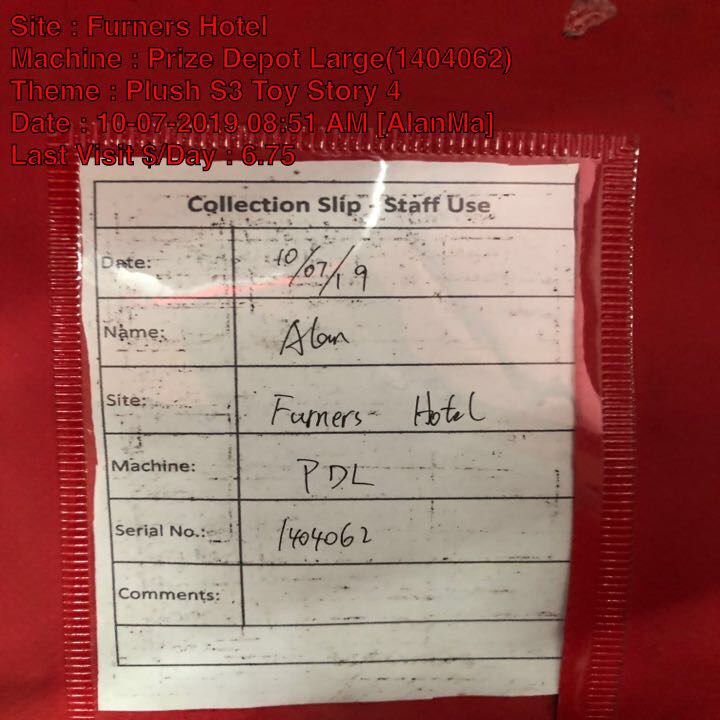 Site : Furners Hotel
Machine : Prize Depot Large(1404062)
Theme : Plush S3 Toy Story 4
Date : 10-07-2019 08:51 AM [AlanMa]
Last Visit $/Day : 6.75
Collection Slip - Staff Use
Date: 10/07/19
Name: Alan
Site: Furners Hotel
Machine: PDL
Serial No.: 1404062
Comments: